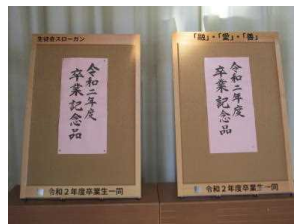 生徒会スローガン
令和二年度
卒業記念品
令和2年度卒業生一同
「聡」・「愛」・「善」
令和二年度
卒業記念品
令和2年度卒業生一同